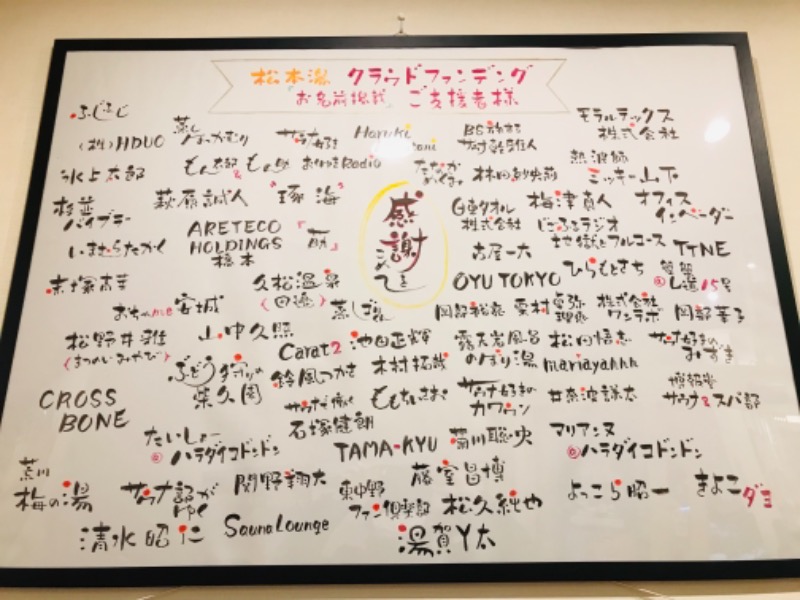 松本湯 クラウドファンディング
「お名前掲載」ご支援者様
ふじふじ
(株)HDUO
サウナ好き
Haruki
モラルテックス
株式会社
氷上太郎
もん太郎&もん助
Radio
林田紗央莉
熱波師
ミッキー山下
杉並
バイブラー
萩原誠人
"琢海"
感謝
をこめて
日東タオル
株式会社
梅津真人
じごふるラジオ
地獄とフルコース
オフィス
インベーダー
いまむらたかく
ARETECO
HOLDINGS
橋本
古屋一大
TTNE
OYU TOKYO
ひらもとさち
久松温泉
(田邉)
蒸しぎれ
株式会社
ワンラボ
安城
山中久照
松野井雅
(まつのいみやび)
Carat2
池田正輝
露天岩風呂
のぼり湯
松田悟志
サウナ好きの
みずき
ぶどう狩りの
柴久園
鈴風つかさ
木村拓哉
mariyahhh
CROSS
BONE
石塚健朗
ももちいさお
サウナ好きの
カワウソ
井奈波謙太
博報堂
サウナ&スパ部
たいしょー
@ハラダイコドンドン
TAMA-KYU
菊川聡央
マリアンヌ
@ハラダイコドンドン
荒川
梅の湯
サウナ記が
ゆく
関野翔太
東中野
ファン倶楽部
藤室昌博
松久純也
よっこら昭一
きよこ
ダヨ
清水昭仁
Sauna Lounge
湯賀Y太